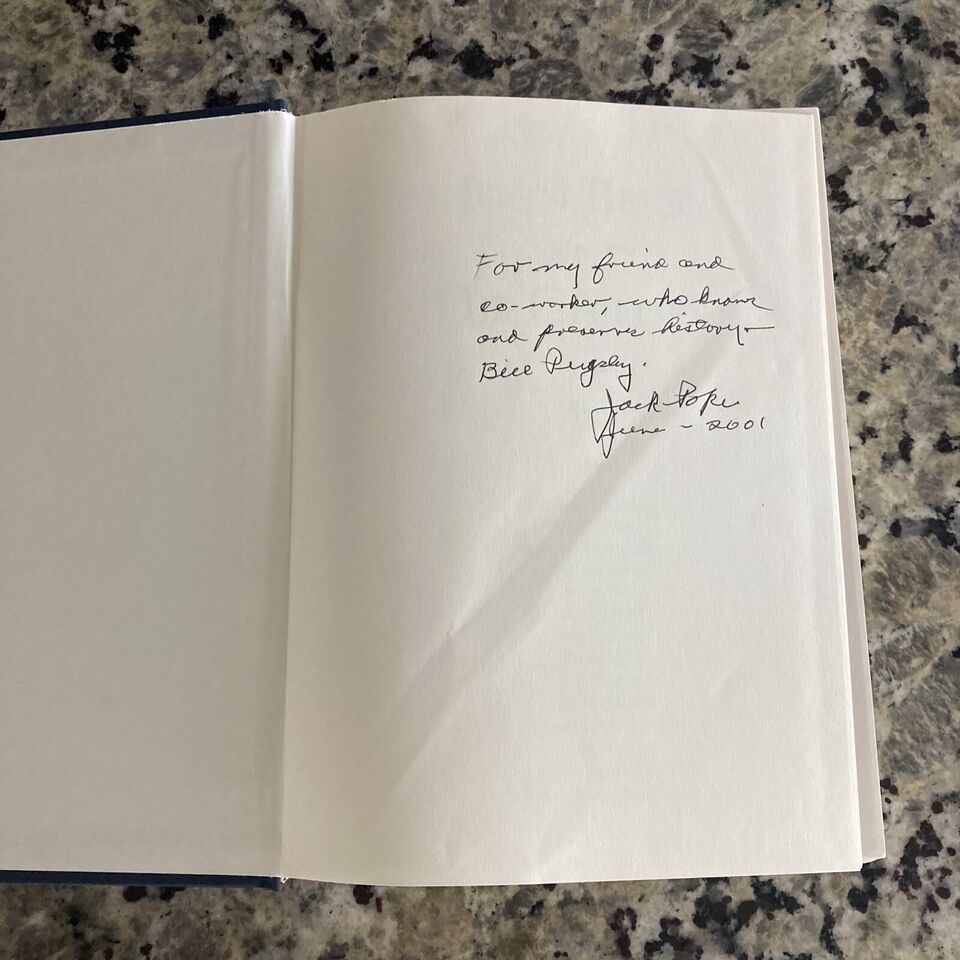 For my friend and
co-worker, who knows
and preserves history—
Bill Pugsley.
Jack Pope
June - 2001